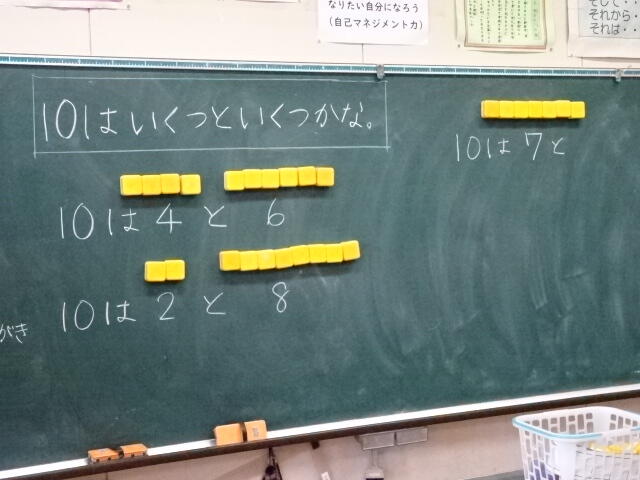 なりたい自分になろう
（自己マネジメント力）
そして・・
それから・
それは・・
10はいくつといくつかな。
10は4と6
10は2と8
がき
10は7と